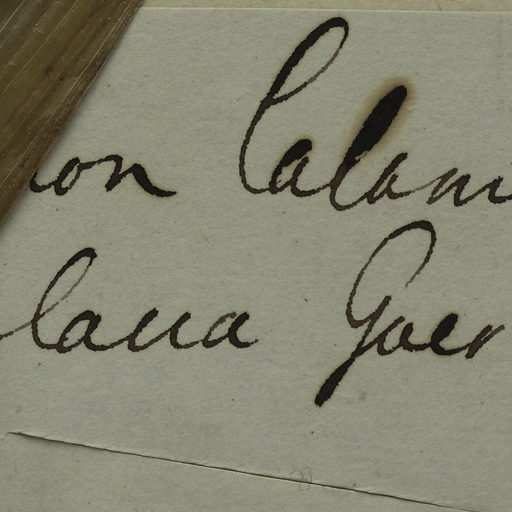 on Calam
lana Goer